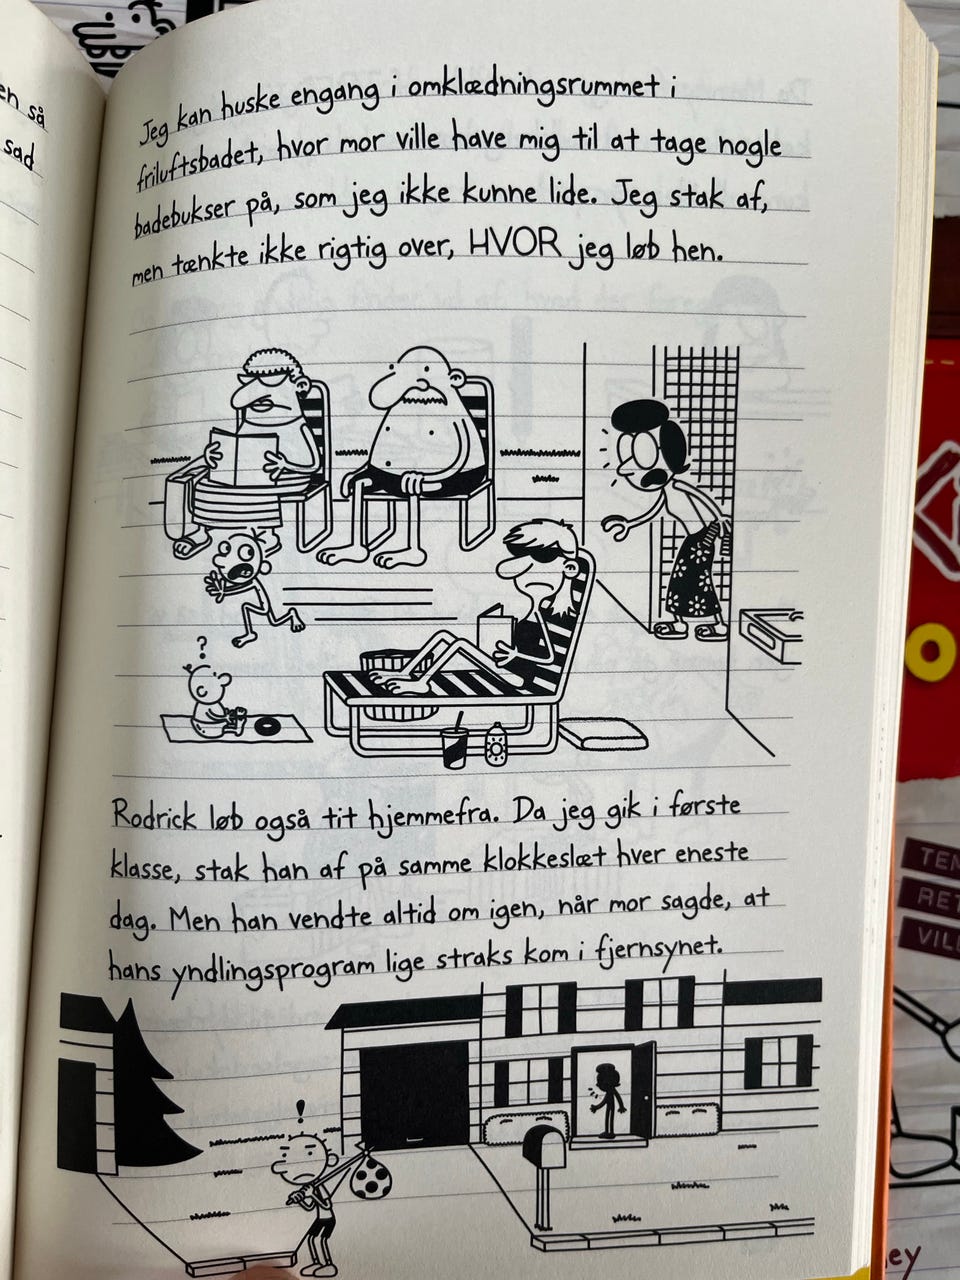 en så
sad
Jeg kan huske engang i omklædningsrummet i
friluftsbadet, hvor mor ville have mig til at tage nogle
badebukser på, som jeg ikke kunne lide. Jeg stak af,
men tænkte ikke rigtig over, HVOR jeg løb hen.
?
Rodrick løb også tit hjemmefra. Da jeg gik i første
klasse, stak han af på samme klokkeslæt hver eneste
dag. Men han vendte altid om igen, når mor sagde, at
hans yndlingsprogram lige straks kom i fjernsynet.
!
TEN
RET
VILL
ey